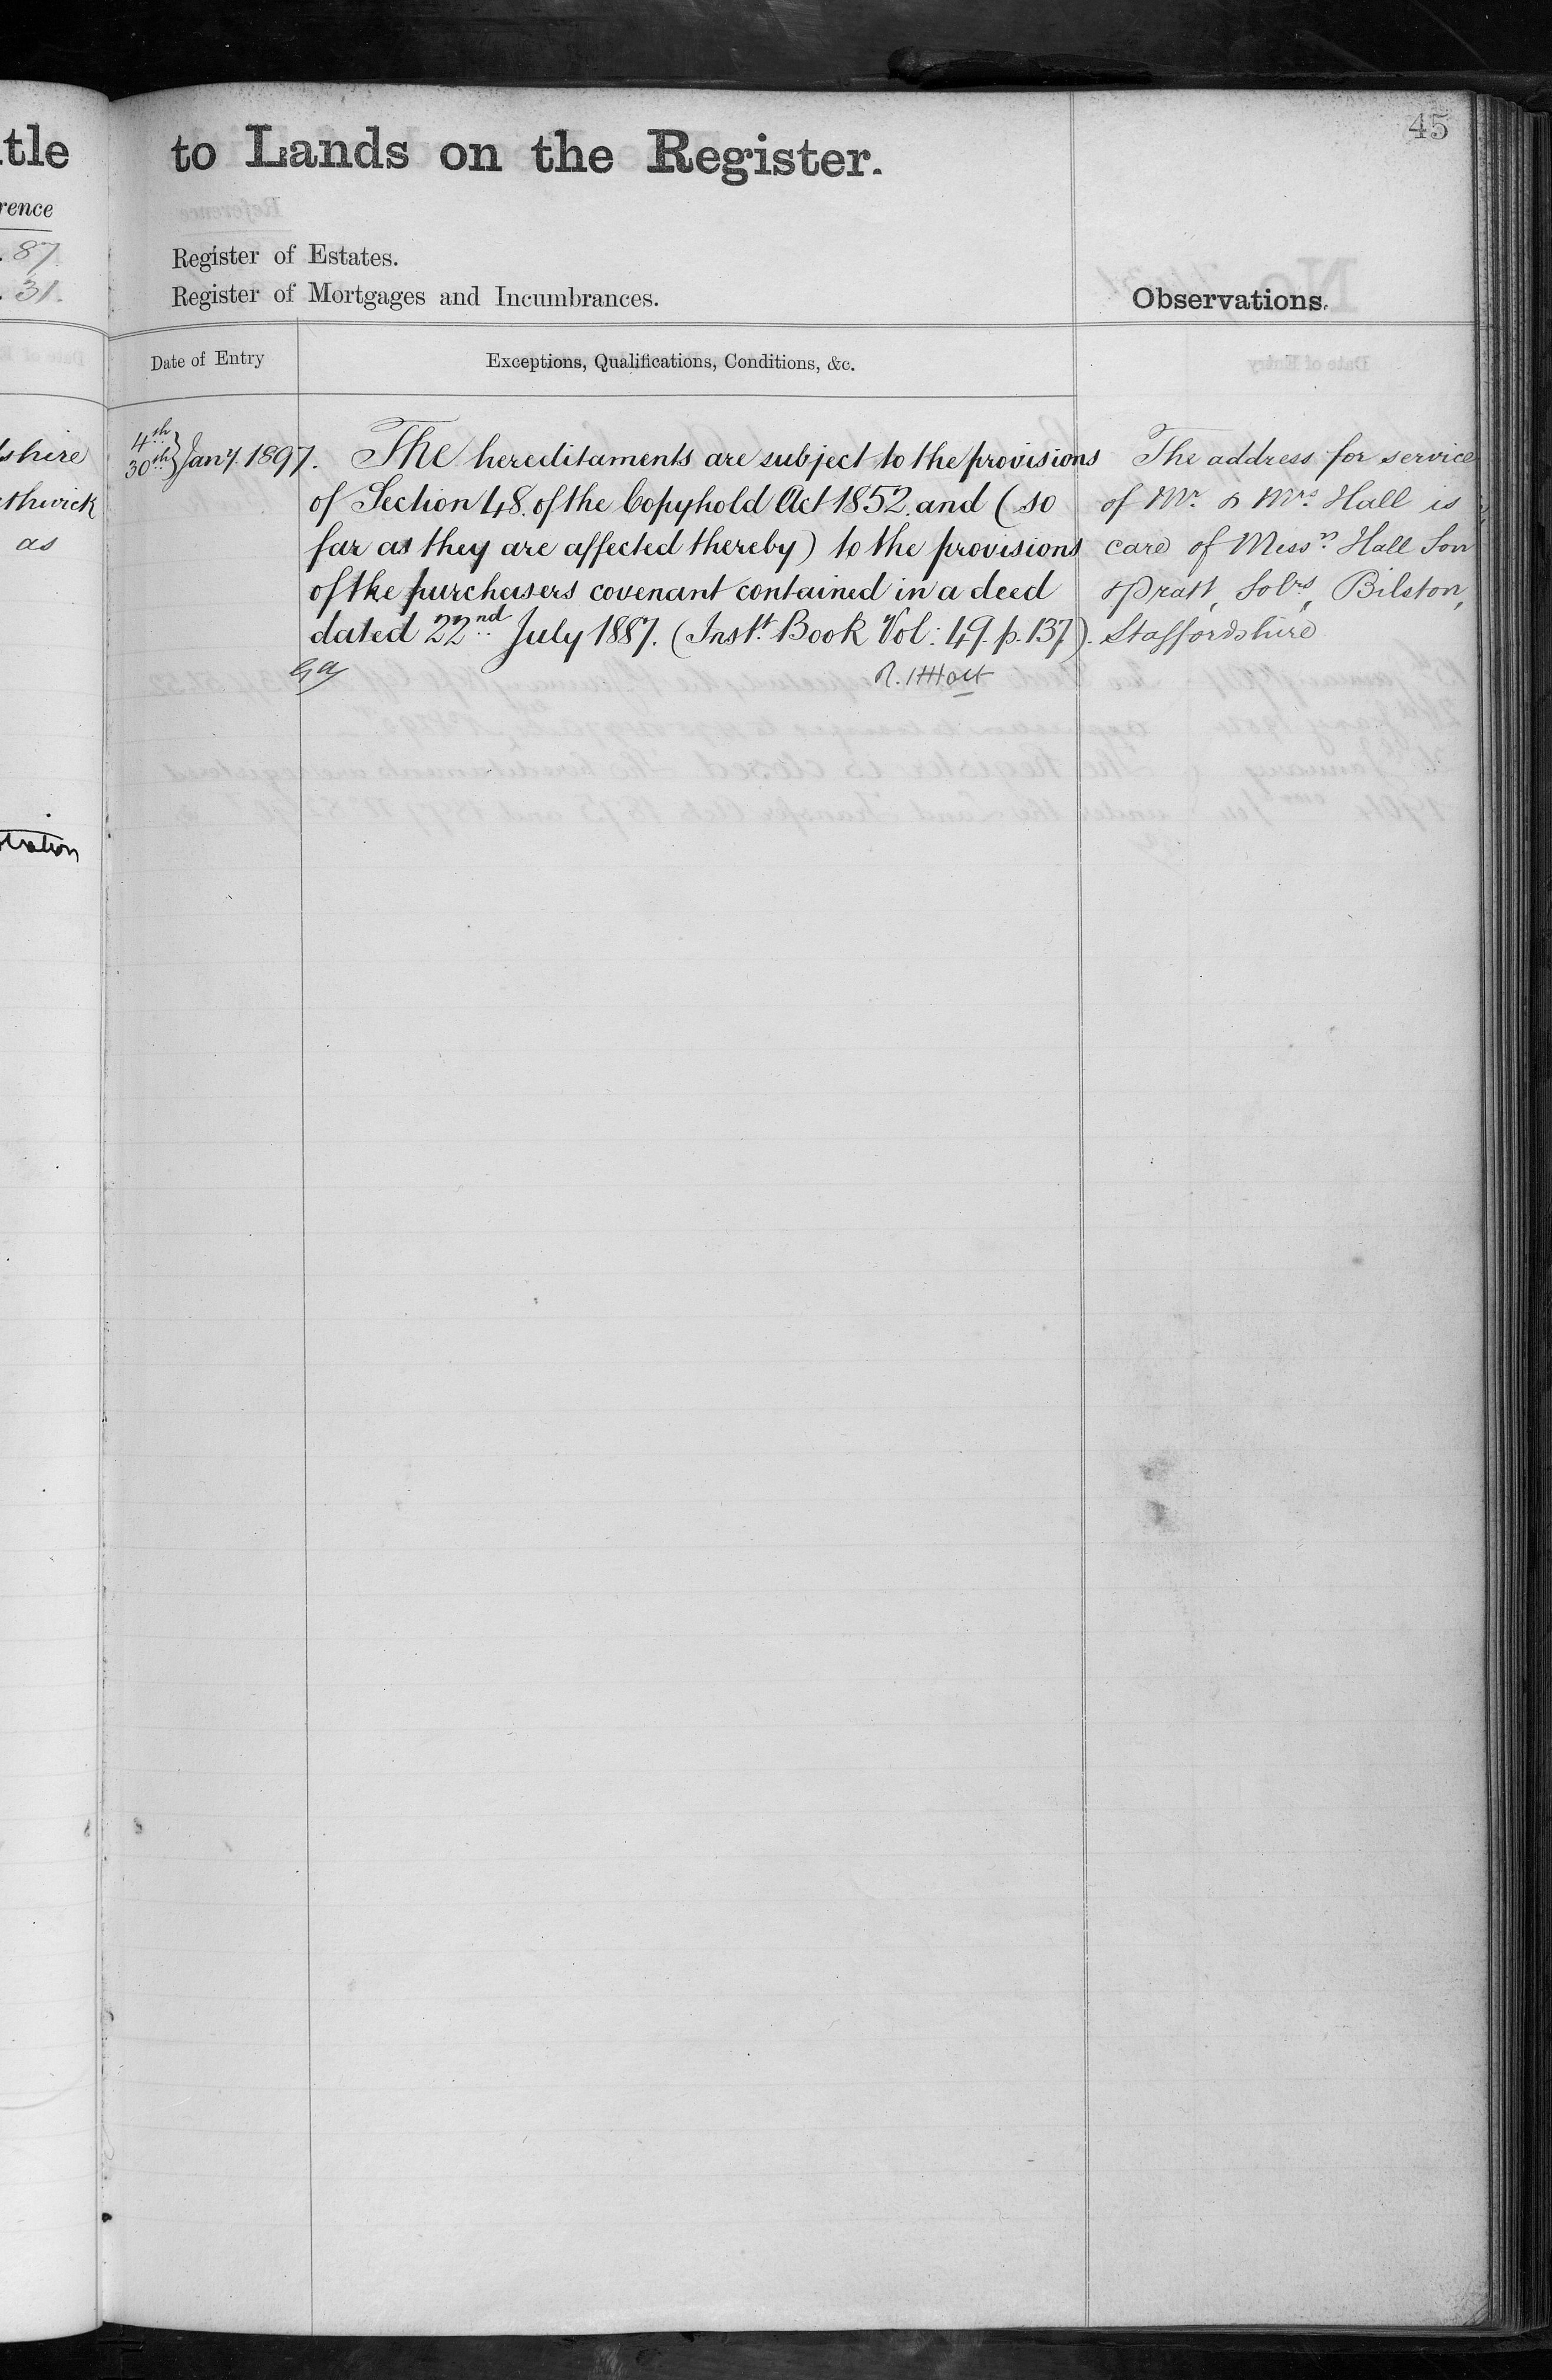 tle
rence
87
31.
shire
thwick
as
tration
45
to Lands on the Register.
Register of Estates.
Register of Mortgages and Incumbrances.
Observations.
Date of Entry
Exceptions, Qualifications, Conditions, &c.
4th
30th } Jany. 1897.
The hereditaments are subject to the provisions
of Section 48. of the Copyhold Act 1852. and (so
far as they are affected thereby) to the provisions
of the purchasers covenant contained in a deed
dated 22nd July 1887. (Inst. Book Vol: 49. p. 137).
The address for service
of Mr. & Mrs. Hall is
care of Messrs. Hall Son
& Pratt, Solrs, Bilston,
Staffordshire